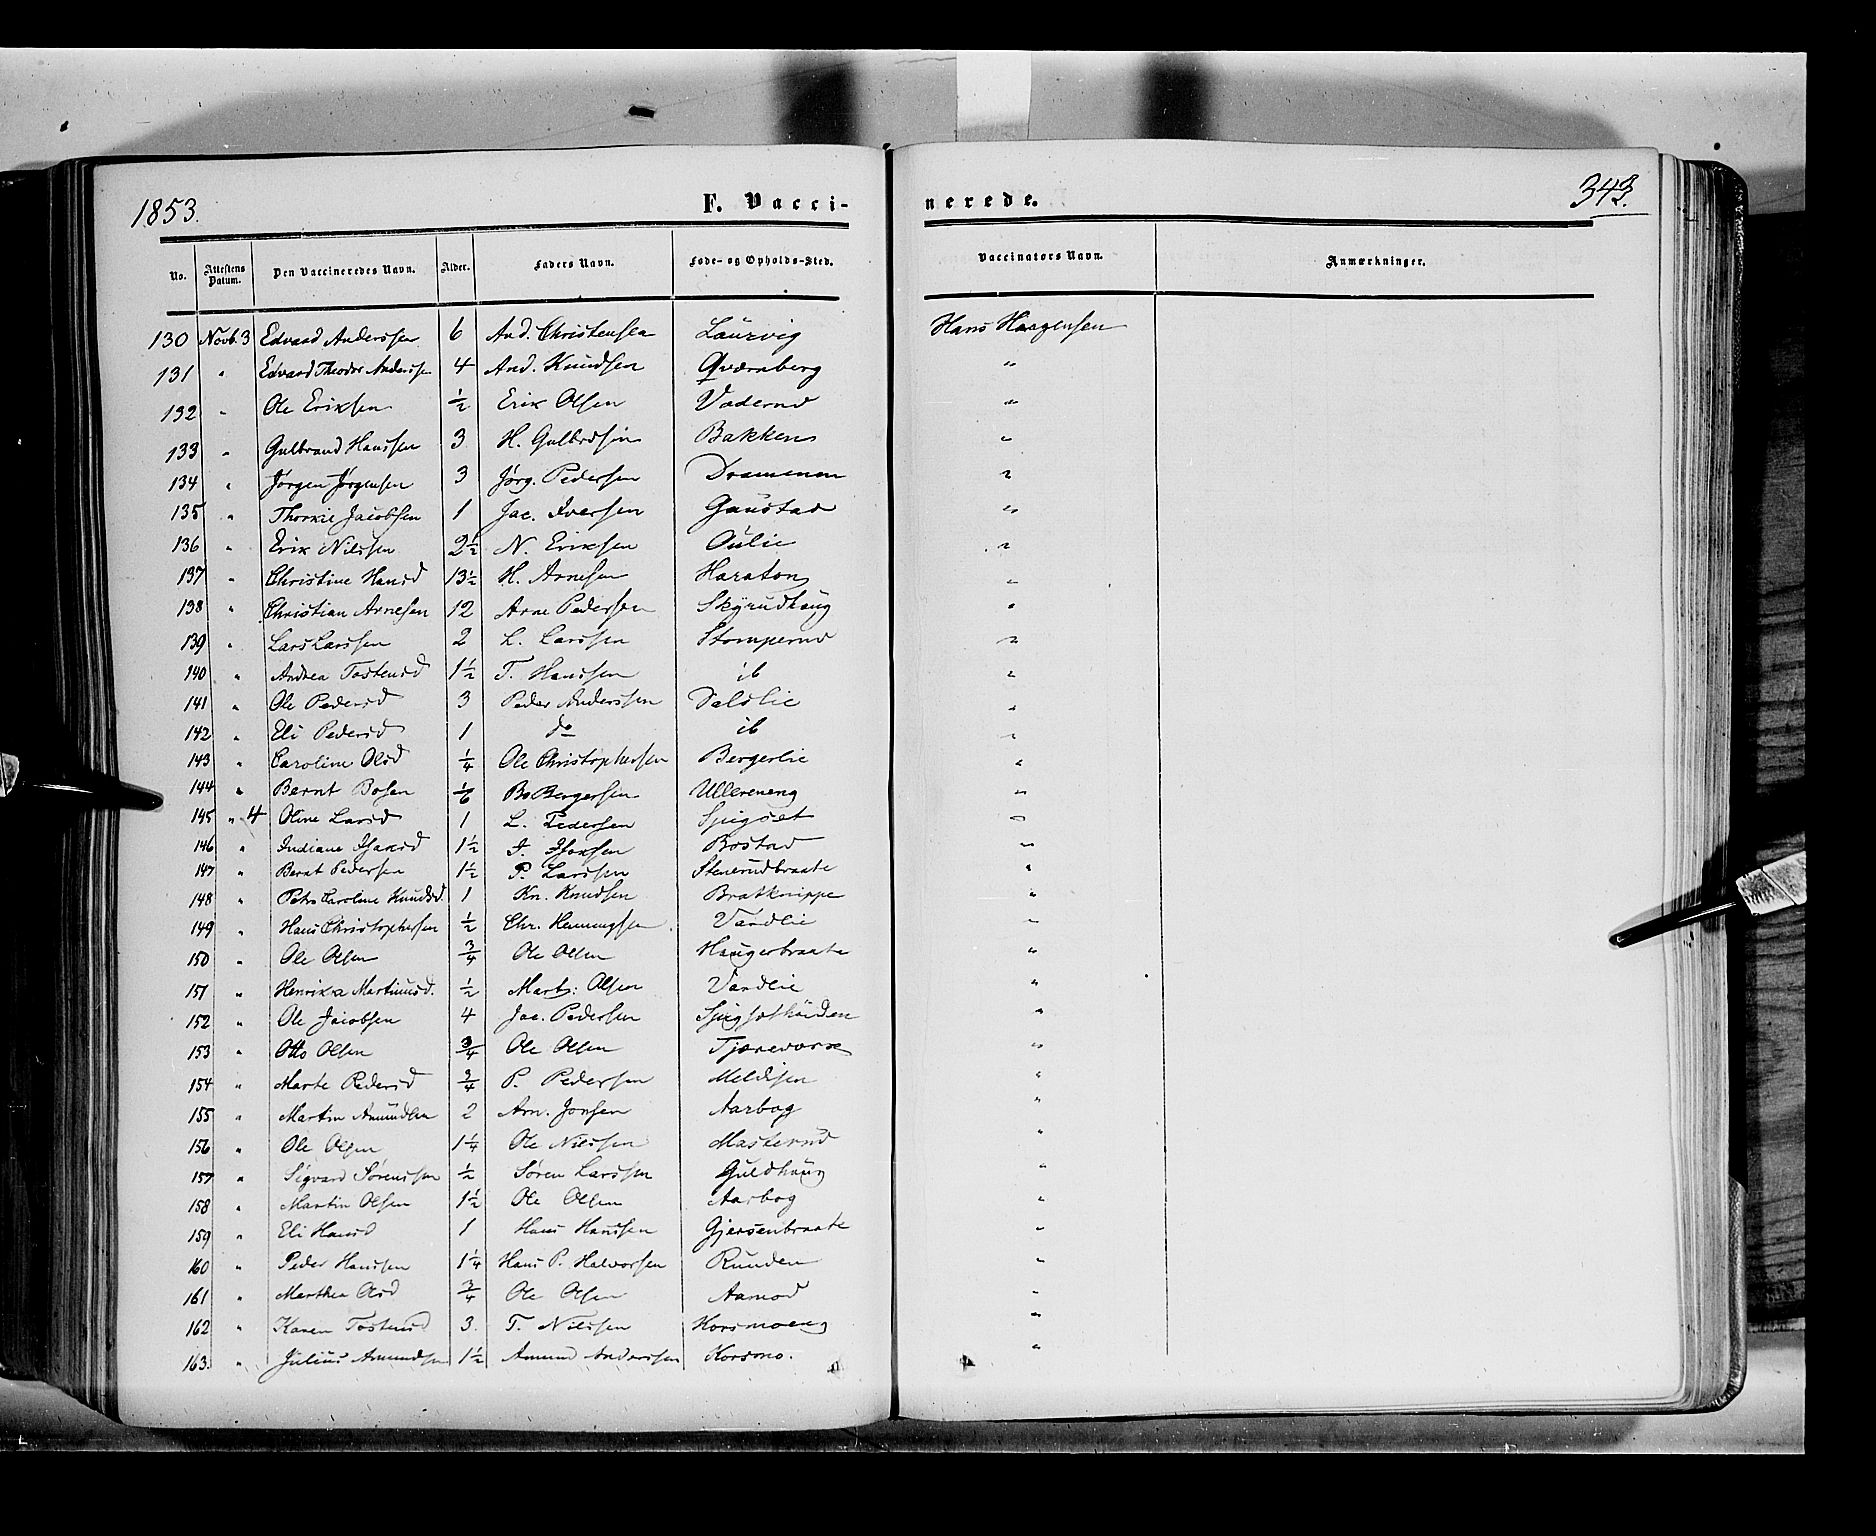 1853. F. Vacci- nerede. 343.
No. Attestens Datum. Den Vaccineredes Navn. Alder. Faders Navn. Føde- og Opholds-Sted. Vaccinators Navn. Anmærkninger.
130 Novb. 3 Edvard Anderssen 6 And. Christensen Laurvig Hans Haagensen
131 " Edvard Theodor Anderssen 4 And. Knudsen Qværnberg "
132 " Ole Eriksen 1/2 Erik Olsen "
133 " Gulbrand Hanssen 3 H. Gulbrdsen Bakken "
134 " Jørgen Jørgensen 3 Jørg. Pedersen Drammen "
135 " Jacobsen 1 Jac. Iversen Gaustad "
136 " Erik Nilssen 2 1/2 N. Eriksen Oulie "
137 " Christine Hansd 13 1/2 H. Arnesen Haraton "
138 " Christian Arnesen 12 Arne Pedersen Skyrudhaug "
139 " Lars Larssen 2 L. Larssen Stomperud "
140 " Andrea Tostensd 1 1/2 T. Hanssen ib "
141 " Ole Pedersd 3 Peder Anderssen "
142 " Eli Pedersd 1 do ib "
143 " Caroline Olsd 1/4 Ole Christophersen Bergerlie "
144 " Bernt Bosen 1/6 Bo Bergersen Ullereneng "
145 " 4 Oline Larsd 1 L. Pedersen Spigset "
146 " Indiane Isaksd 1 1/2 I. Bostad "
147 " Bernt Pedersen 1 1/2 P. Larssen Stenerudbraate "
148 " Petra Caroline Knudsd. 1 Kn. Knudsen Bratknippe "
149 " Hans Christophersen 1/2 Chr. Henningsen Vardlie "
150 " Ole Olsen 3/4 Ole Olsen Haugerbraate "
151 " Henrika Martinusd. 1/2 Mart: Olsen Vardlie "
152 " Ole Jacobsen 4 Jac. Pedersen "
153 " Otto Olsen 3/4 Ole Olsen "
154 " Marte Pedersd 3/4 P. Pedersen Meldisen "
155 " Martin Amundsen 2 Am. Jonsen Aarbog "
156 " Ole Olsen 1 1/4 Ole Nilssen Masterud "
157 " Sigvard Sørenssen 1/2 Søren Larssen Guldhaug "
158 " Martin Olsen 1 1/2 Ole Olsen Aarbog "
159 " Eli Hansd 1 Hans Hanssen Gjersenbraate "
160 " Peder Hanssen 1 1/4 Hans P. Halvorsen Runden "
161 " Marthea Olsd 3/4 Ole Olsen Aamod "
162 " Karen Tostensd 3. T. Nilssen Korsmoeng "
163. " Julius Amundsen 1 1/2 Amund Anderssen Korsmo. "